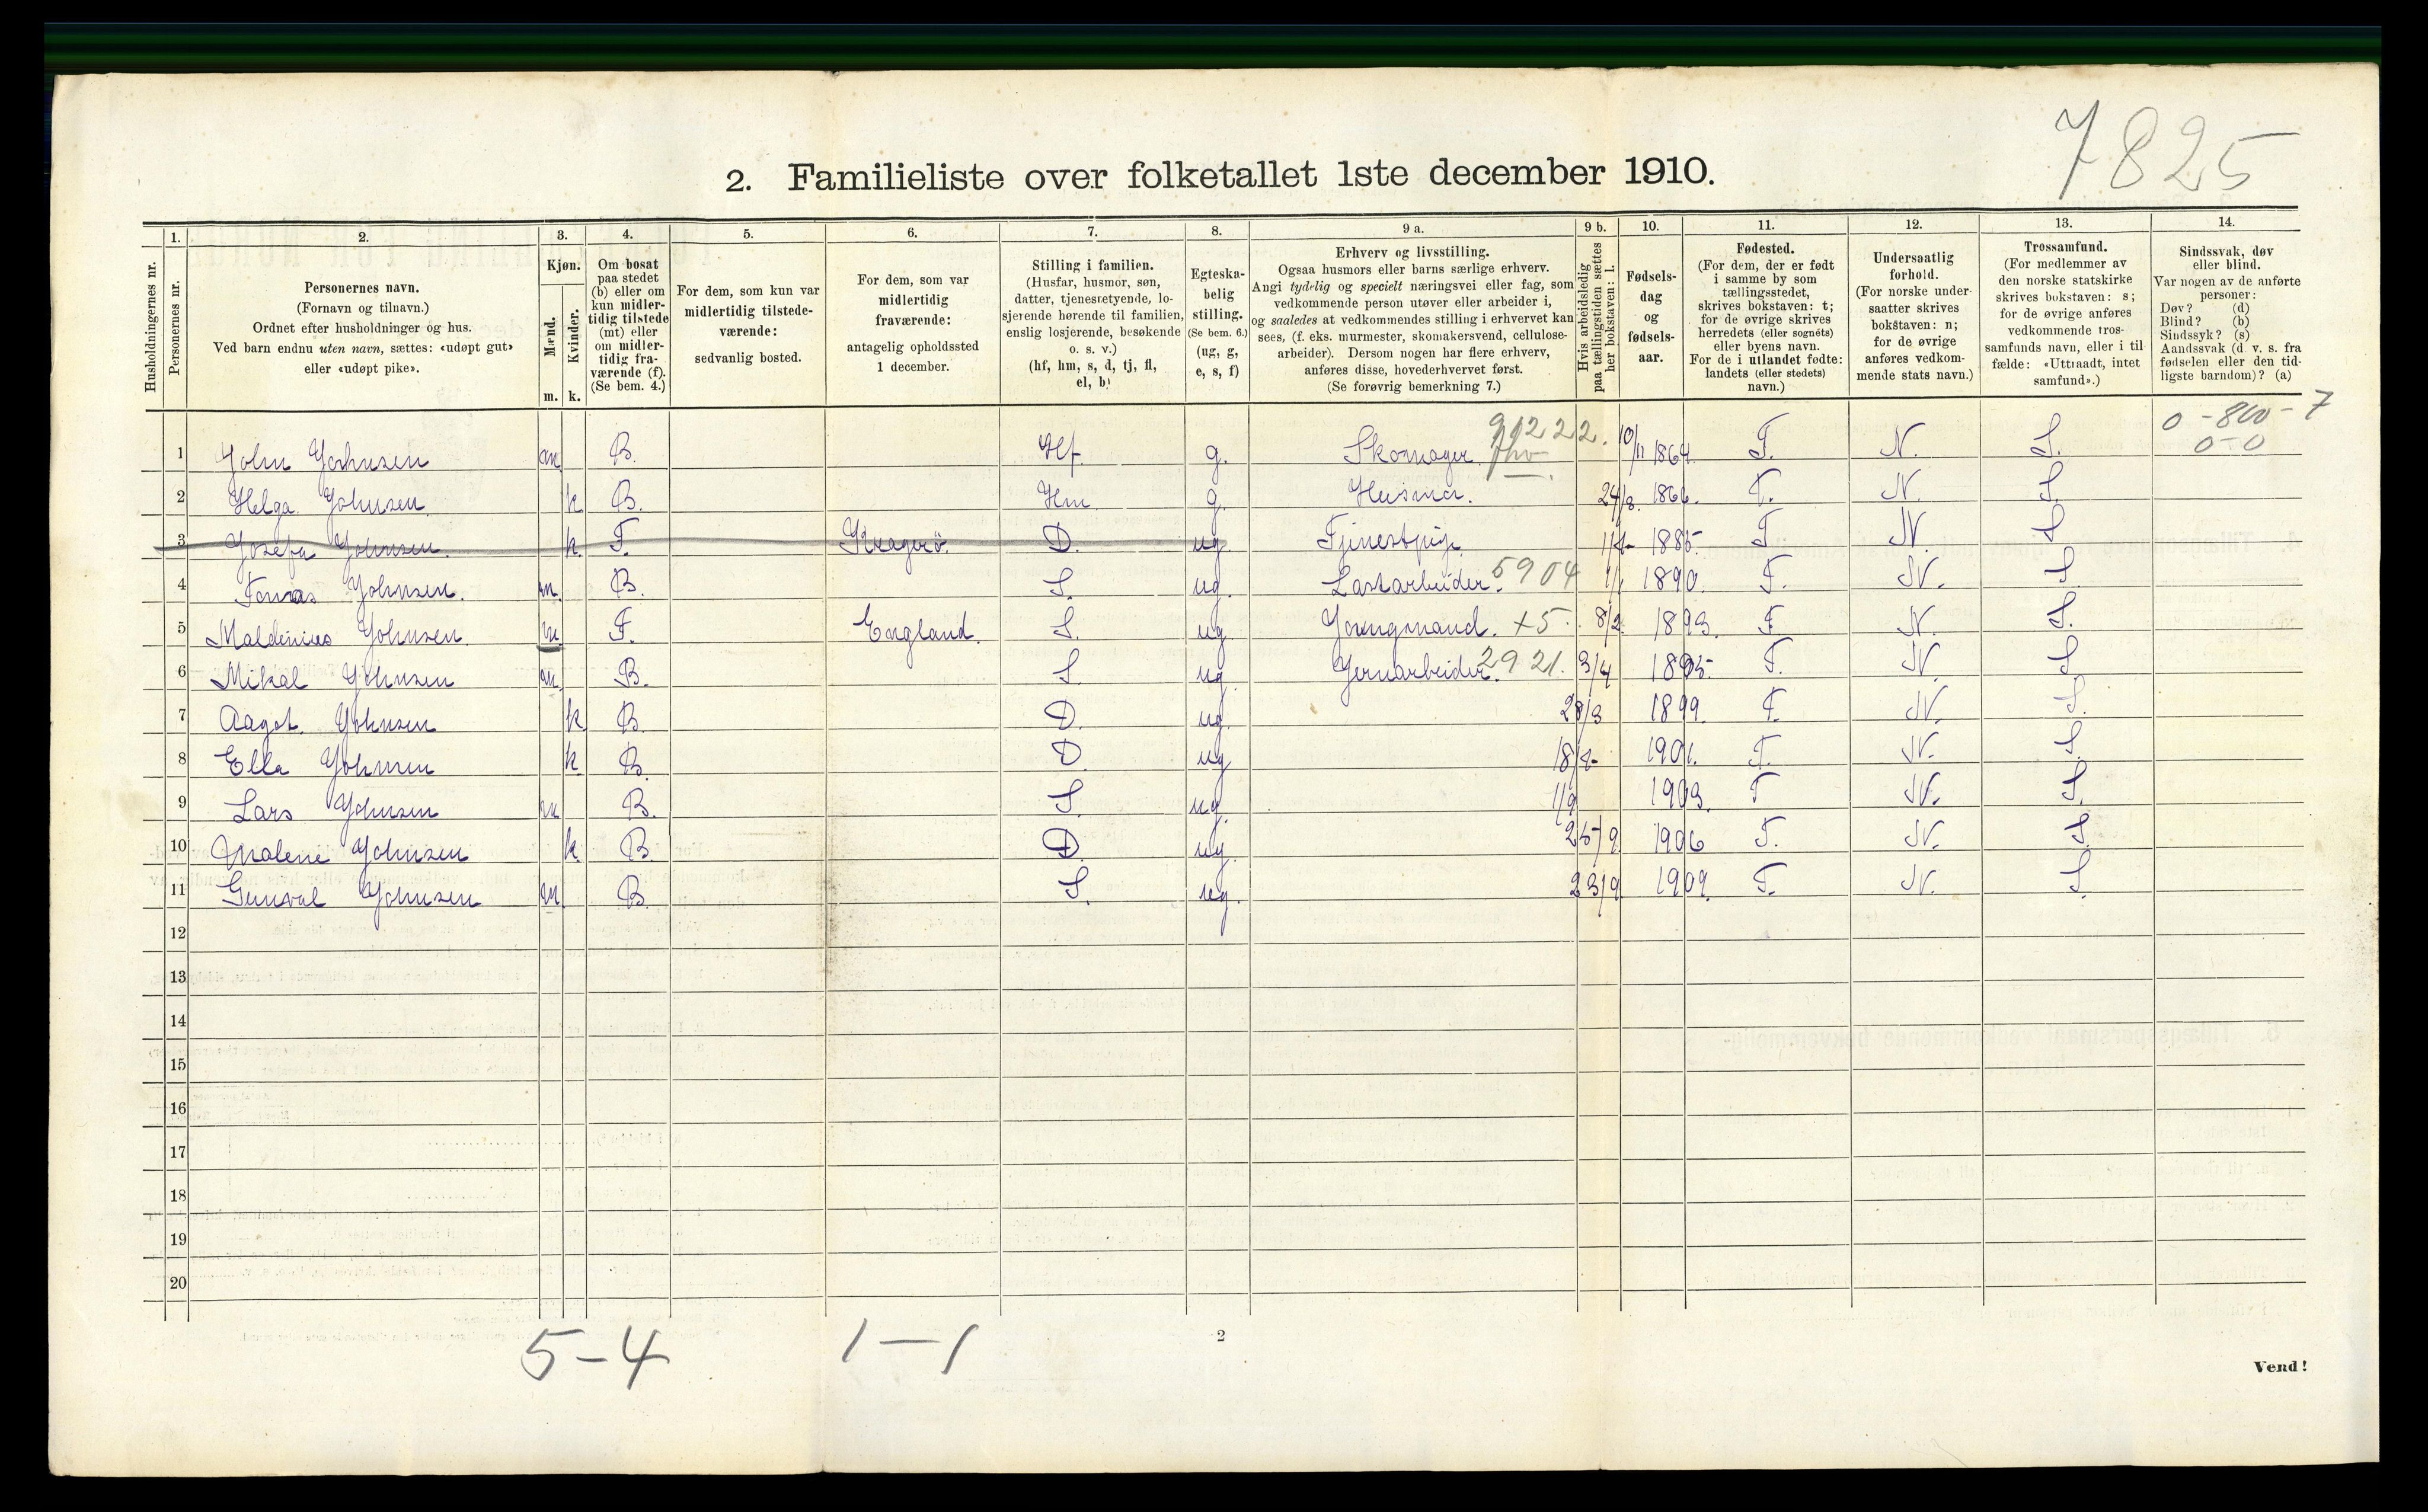 7825
2. Familieliste over folketallet 1ste december 1910.
1. 2. 3. 4. 5. 6. 7. 8. 9 a. 9 b. 10. 11. 12. 13. 14.
Husholdningernes nr.
Personernes nr.
Personernes navn.
(Fornavn og tilnavn.)
Ordnet efter husholdninger og hus.
Ved barn endnu uten navn, sættes: «udøpt gut»
eller «udøpt pike».
Kjøn.
Mænd.
Kvinder.
m. k.
Om bosat
paa stedet
(b) eller om
kun midler-
tidig tilstede
(mt) eller
om midler-
tidig fra-
værende (f).
(Se bem. 4.)
For dem, som kun var
midlertidig tilstede-
værende:
sedvanlig bosted.
For dem, som var
midlertidig
fraværende:
antagelig opholdssted
1 december.
Stilling i familien.
(Husfar, husmor, søn,
datter, tjenestetyende, lo-
sjerende hørende til familien,
enslig losjerende, besøkende
o. s. v.)
(hf, hm, s, d, tj, fl,
el, b)
Egteska-
belig
stilling.
(Se bem. 6.)
(ug, g,
e, s, f)
Erhverv og livsstilling.
Ogsaa husmors eller barns særlige erhverv.
Angi tydelig og specielt næringsvei eller fag, som
vedkommende person utøver eller arbeider i,
og saaledes at vedkommendes stilling i erhvervet kan
sees, (f. eks. murmester, skomakersvend, cellulose-
arbeider). Dersom nogen har flere erhverv,
anføres disse, hovederhvervet først.
(Se forøvrig bemerkning 7.)
Hvis arbeidsledig
paa tællingstiden sættes
her bokstaven: l.
Fødsels-
dag
og
fødsels-
aar.
Fødested.
(For dem, der er født
i samme by som
tællingsstedet,
skrives bokstaven: t;
for de øvrige skrives
herredets (eller sognets)
eller byens navn.
For de i utlandet fødte:
landets (eller stedets)
navn.)
Undersaatlig
forhold.
(For norske under-
saatter skrives
bokstaven: n;
for de øvrige
anføres vedkom-
mende stats navn.)
Trossamfund.
(For medlemmer av
den norske statskirke
skrives bokstaven: s;
for de øvrige anføres
vedkommende tros-
samfunds navn, eller i til-
fælde: «Uttraadt, intet
samfund».)
Sindssvak, døv
eller blind.
Var nogen av de anførte
personer:
Døv? (d)
Blind? (b)
Sindssyk? (s)
Aandssvak (d. v. s. fra
fødselen eller den tid-
ligste barndom)? (a)
0-800-7
0-0
1 John Johnsen m B. Hf. g. Skomager 10/11 1864 T. N. S.
2 Helga Johnsen k B. Hm g. Husmor. 24/8. 1866. T. N. S.
3 Josefa Johnsen. k. F. Kragerö. D. ug Tjenestpige 1885. T N. S
4 Tomas Johnsen. m. B. S. ug. Lastarbeider. 5904 1/1 1890. T. N. S.
5 Maldenius Johnsen. m F. England. S. ug Joungmand. +5. 8/2. 1893. T N. S.
6 Mikal Johnsen m. B. S ug. Jernarbeider. 2921. 3/4 1895. T. N. S
7 Aagot Johnsen k B. D. ug. 28/3 1899. T. N. S.
8 Ella Johnsen k B. D ug 1901. T. N. S.
9 Lars Johnsen m B. S. ug. 1/9 1903. T N. S.
10 Malene Johnsen k. B. D. ug. 25/9 1906 T. N. S.
11 Gunval Johnsen m. B. S. ug. 23/9 1909. T. N. S.
12
13
14
15
16
17
18
19
20
5-4 1-1
2
Vend!